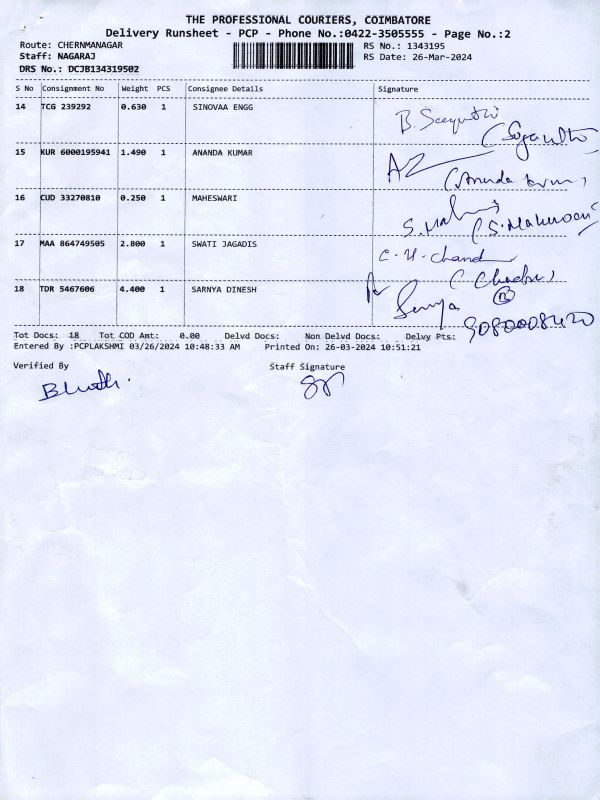 THE PROFESSIONAL COURIERS, COIMBATORE
Delivery Runsheet - PCP - Phone No.:0422-3505555 - Page No.:2
Route: CHERNMANAGAR
RS No.: 1343195
Staff: NAGARAJ
RS Date: 26-Mar-2024
DRS No.: DCJB134319502
S No Consignment No Weight PCS Consignee Details Signature
14 TCG 239292 0.630 1 SINOVAA ENGG
15 KUR 6000195941 1.490 1 ANANDA KUMAR
16 CUD 33270810 0.250 1 MAHESWARI
S. Mah
17 MAA 864749505 2.800 1 SWATI JAGADIS
C. H. Chand
18 TDR 5467606 4.400 1 SARNYA DINESH
9080008420
Tot Docs: 18 Tot COD Amt: 0.00 Delvd Docs: Non Delvd Docs: Delvy Pts:
Entered By :PCPLAKSHMI 03/26/2024 10:48:33 AM Printed On: 26-03-2024 10:51:21
Verified By Staff Signature